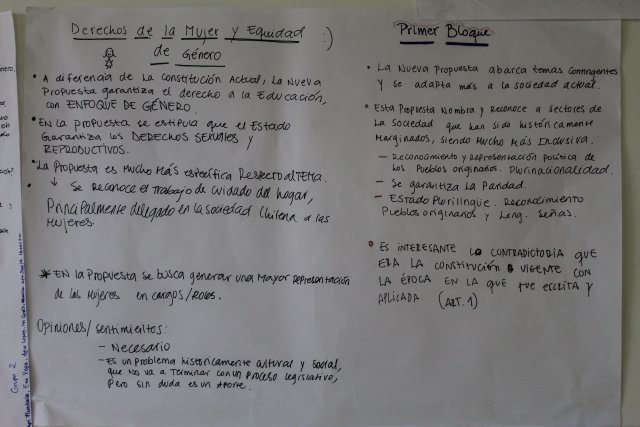 Derechos de la Mujer y Equidad
de Género
:)
• A diferencia de la Constitución Actual, la Nueva
Propuesta garantiza el derecho a la Educación,
con ENFOQUE DE GÉNERO
• En la propuesta se estipula que el Estado
Garantiza los DERECHOS SEXUALES y
REPRODUCTIVOS.
• La Propuesta es Mucho Más específica Respecto al TEMA.
↓ Se reconoce el trabajo de cuidado del hogar,
Principalmente delegado en la sociedad Chilena a las
Mujeres.
* EN la Propuesta se busca generar una Mayor representación
de las Mujeres en cargos/Roles.
Opiniones/sentimientos:
- Necesario
- Es un problema históricamente cultural y social,
que no va a terminar con un proceso legislativo,
Pero sin duda es un Aporte.
Primer Bloque
• La Nueva Propuesta abarca temas contingentes
y se adapta más a la sociedad actual.
• Esta Propuesta Nombra y Reconoce a sectores de
la sociedad que han sido históricamente
Marginados, siendo Mucho Más Inclusiva.
- Reconocimiento y Representación Política de
los Pueblos originarios. Plurinacionalidad.
- Se garantiza la Paridad.
- Estado Plurilingüe. Reconocimiento
Pueblos originarios y Leng. Señas.
• Es INTERESANTE LO CONTRADICTORIA QUE
ERA LA CONSTITUCIÓN VIGENTE CON
LA ÉPOCA EN LA QUE FUE ESCRITA Y
APLICADA (ART. 1)
Grupo 2